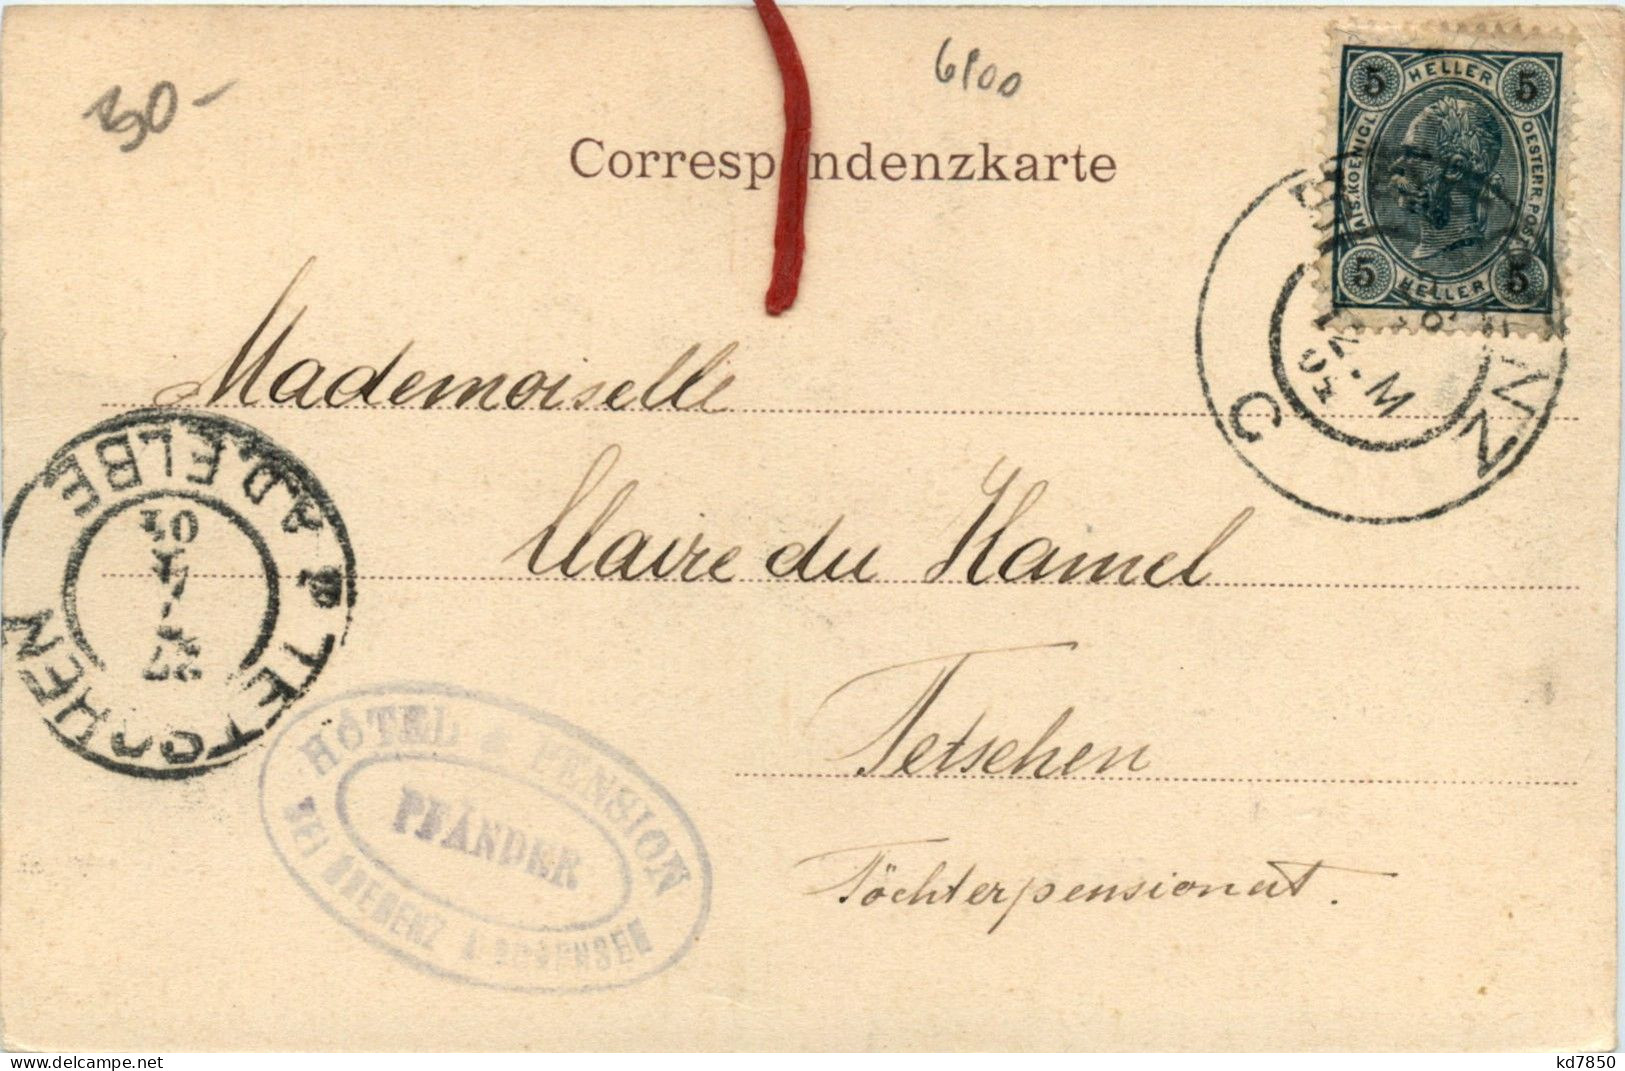 50-
6100
Correspondenzkarte
5 HELLER 5
KAIS. KOENIGL. OESTERR. POST
5 HELLER 5
Mademoiselle
Claire du Hamel
Tetschen
Töchterpensionat.
TETSCHEN A.D. ELBE
01
HÔTEL & PENSION
PFÄNDER
BEI BREGENZ A BODENSEE
www.delcampe.net
kd7850